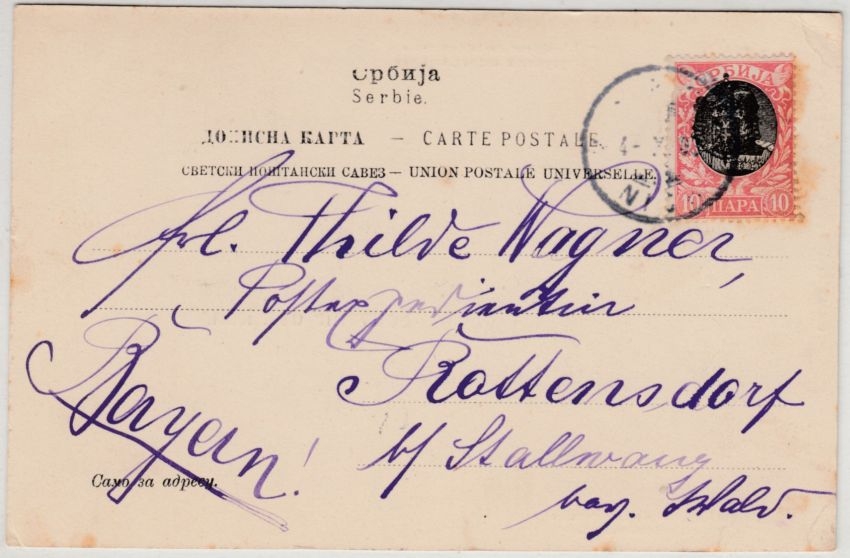 Србија
Serbie.
ДОПИСНА КАРТА — CARTE POSTALE
СВЕТСКИ ПОШТАНСКИ САВЕЗ — UNION POSTALE UNIVERSELLE.
СРБИЈА
10 ПАРА 10
Frl. Thilde Wagner,
Postexpedientin
Rottensdorf
Bayern!
b/ Stallwang
bay. Wald.
Само за адресу.